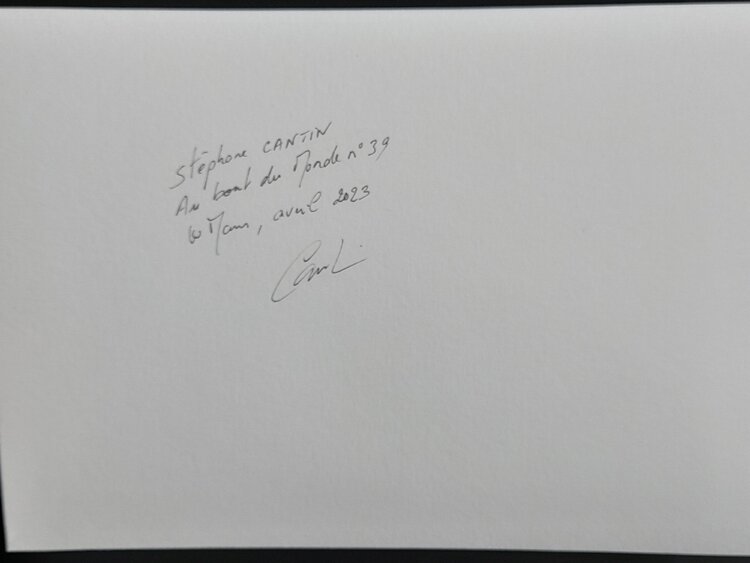 Stéphane CANTIN
Au bout du Monde n° 39
Le Mans, avril 2023